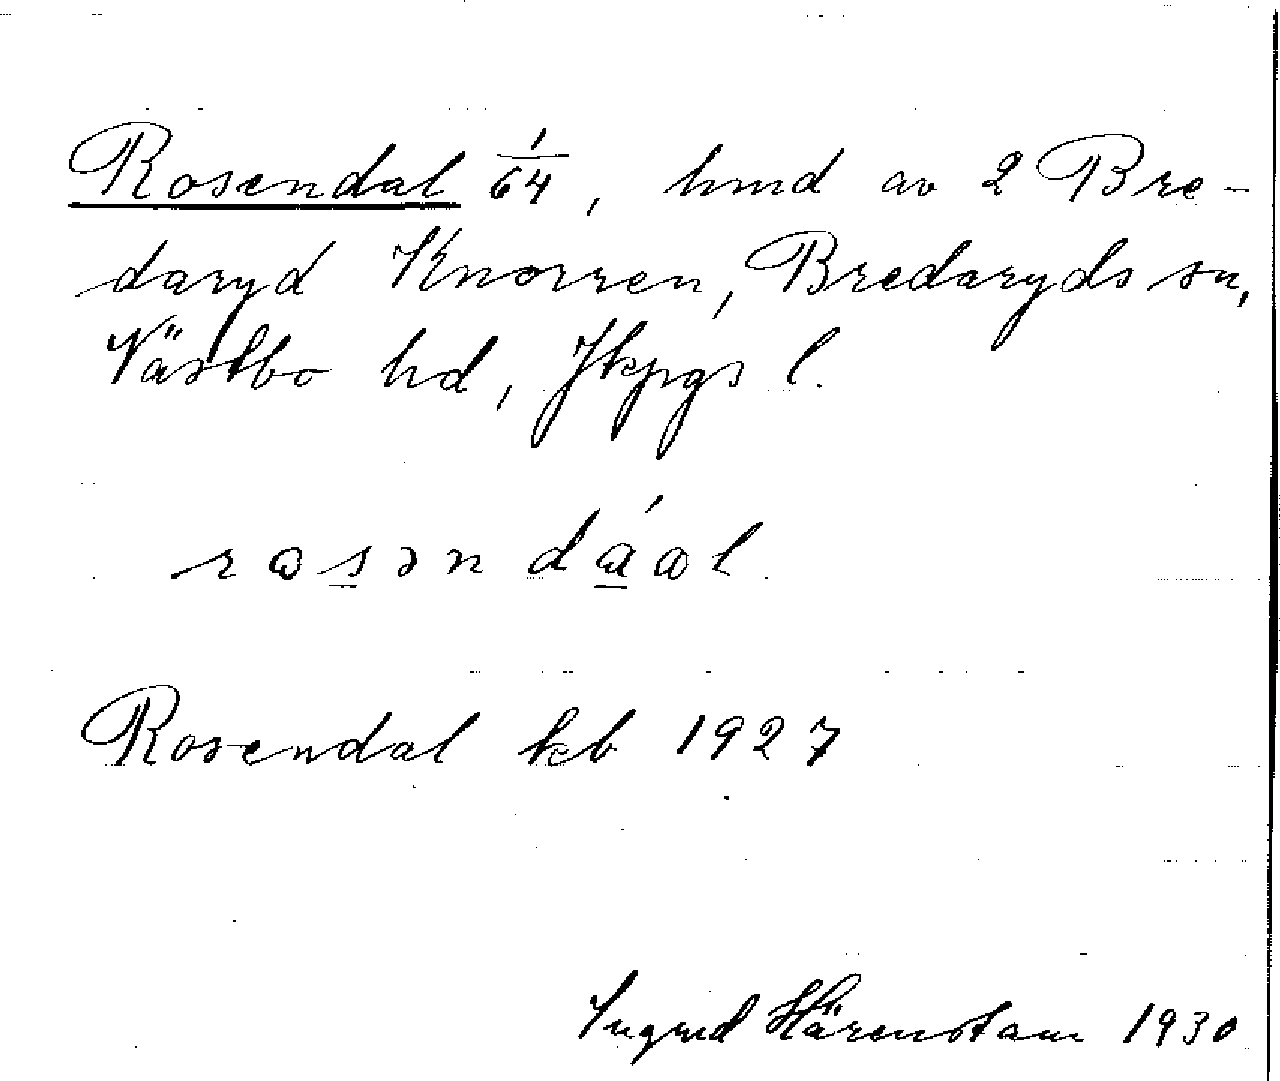 Rosendal 1/64, hmd av 2 Bre-
daryd Knorren, Bredaryds sn,
Västbo hd, Jkpgs l.
rɷsən dáɷl
Rosendal kb 1927
Ingrid Härenstam 1930